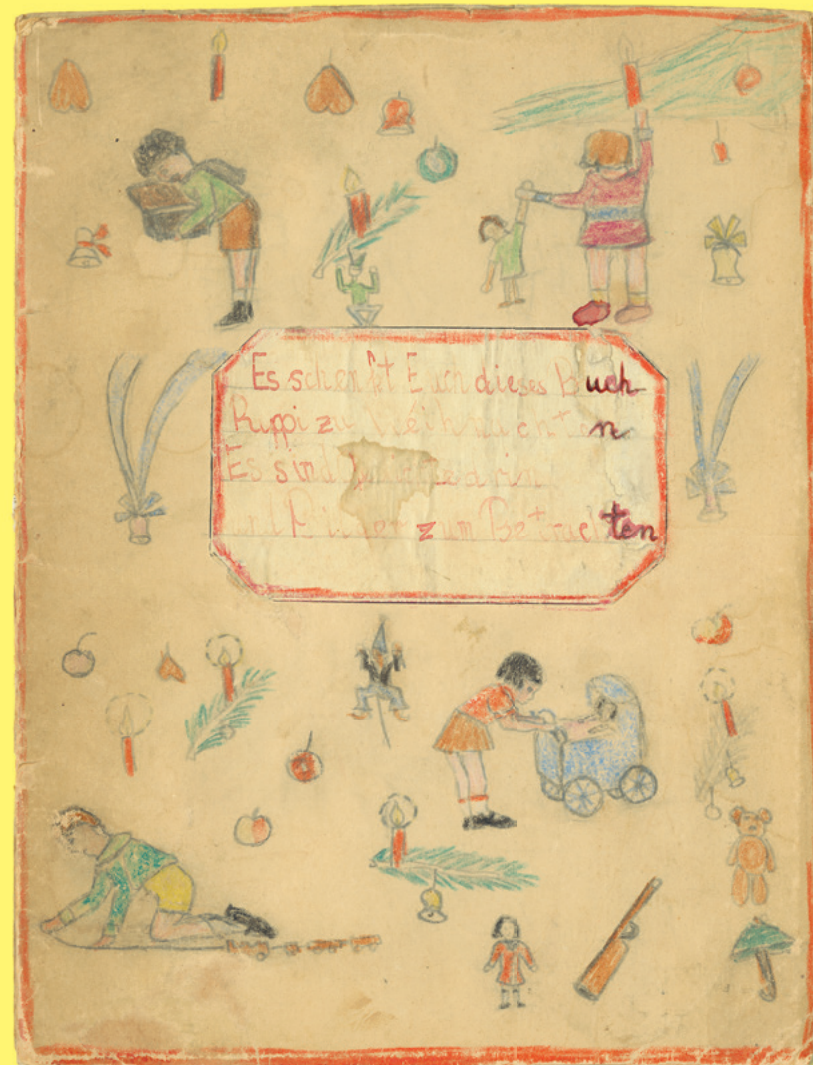 Es schenkt Euch dieses Buch
Ruppi zu Weihnachten
Es sind darin
und Bilder zum Betrachten